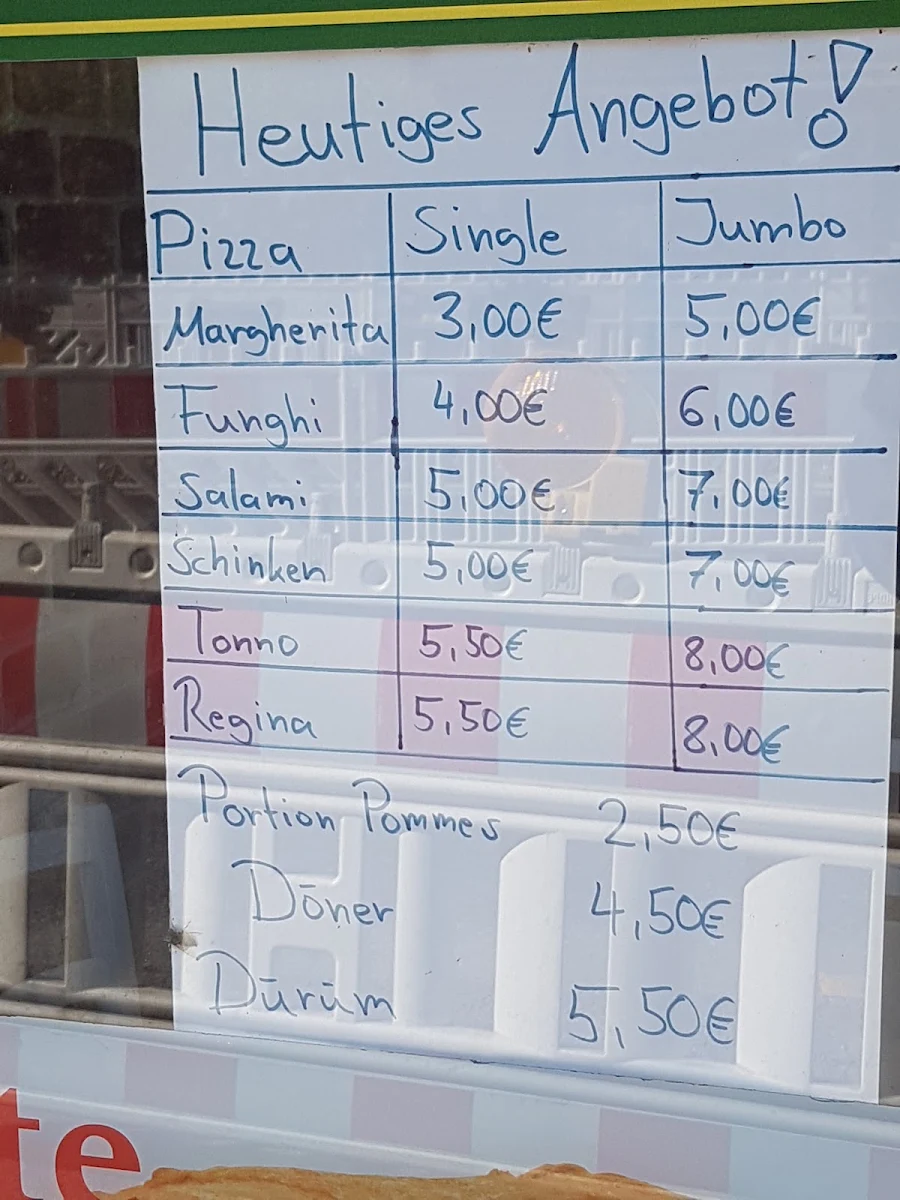 Heutiges Angebot!
Pizza Single Jumbo
Margherita 3,00€ 5,00€
Funghi 4,00€ 6,00€
Salami 5,00€ 7,00€
Schinken 5,00€ 7,00€
Tonno 5,50€ 8,00€
Regina 5,50€ 8,00€
Portion Pommes 2,50€
Döner 4,50€
Dürüm 5,50€
te